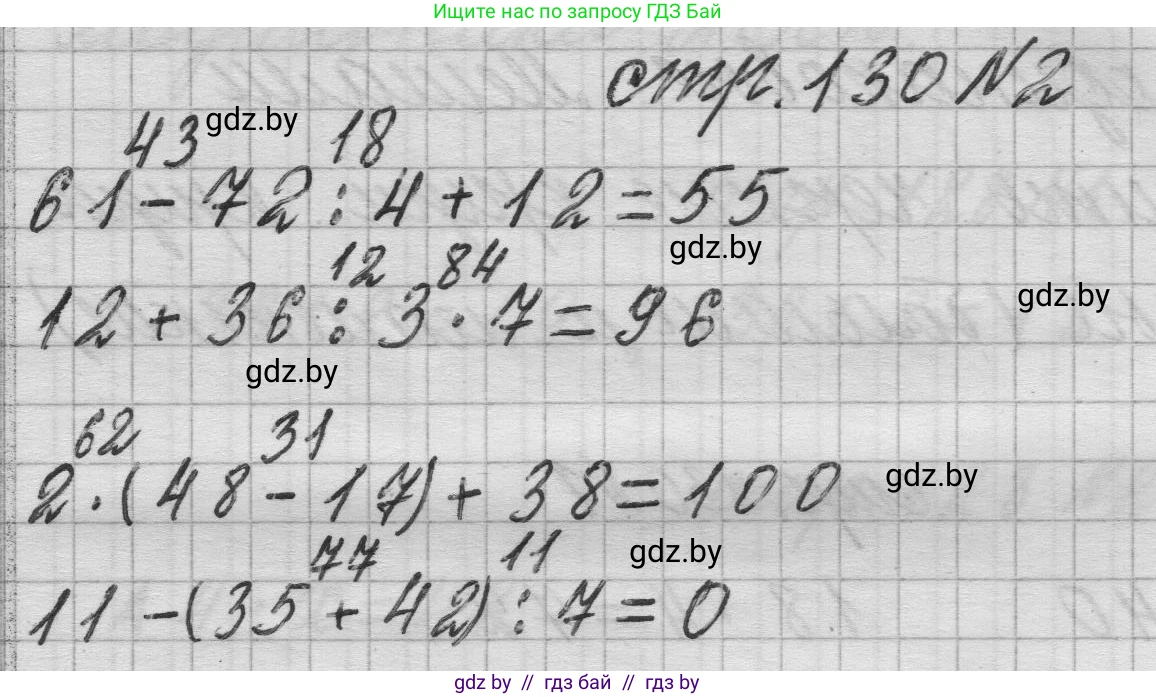 Ищите нас по запросу ГДЗ Бай
стр. 130 №2
43 gdz.by 18
61 - 72 : 4 + 12 = 55
gdz.by
12 84
12 + 36 : 3 · 7 = 96
gdz.by
gdz.by
62 31
2 · (48 - 17) + 38 = 100
gdz.by
77 11
gdz.by
11 - (35 + 42) : 7 = 0
gdz by // гдз бай // гдз by